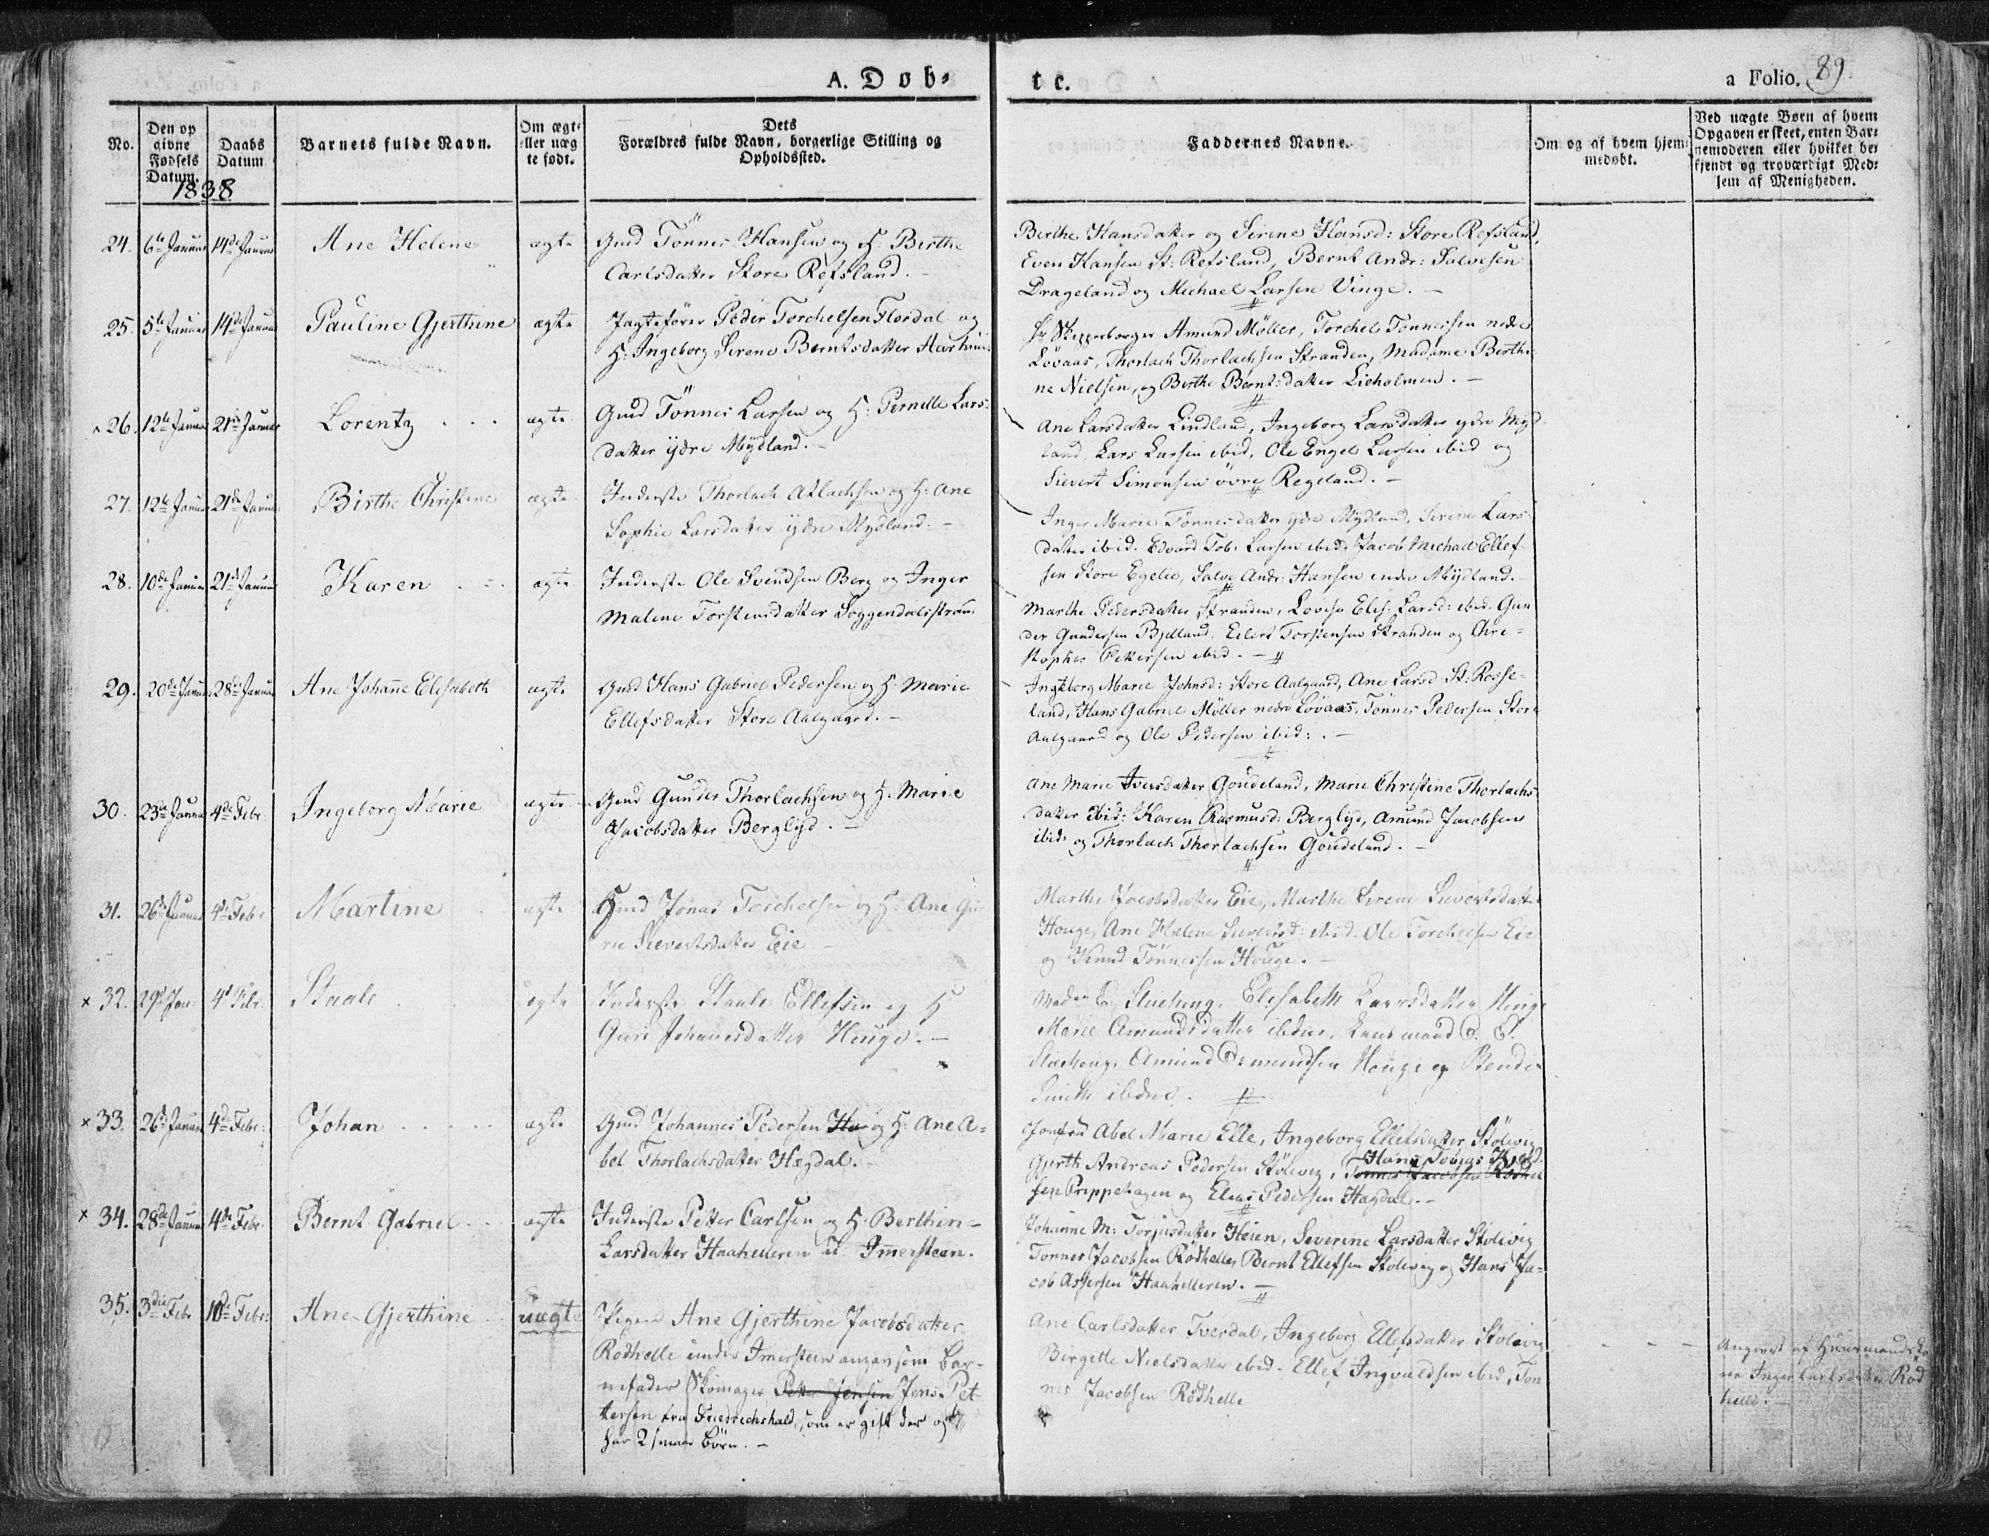 A. Døb=
te.
a Folio. 89.
No.
Den op
givne
Fødsels
Datum.
Daabs
Datum
Barnets fulde Navn.
Om ægt=
eller uæg
te født.
Dets
Forældres fulde Navn, borgerlige Stilling og
Opholdssted.
Faddernes Navne.
Om og af hvem hjem=
medøbt.
Ved uægte Børn af hvem
Opgaven er skeet, enten Bar=
nemoderen eller hvilket be=
kjendt og troværdigt Med=
lem af Menigheden.
1838
24. 6te Januar 14de Januar Ane Helene ægte Gmd Tönnes Hansen og H: Birthe
Carlsdatter Store Refsland. -
Berthe Hansdatter og Sirene Hansd: Store Refsland,
Even Hansen St: Refsland, Bernt Andr: Salvesen
Drageland og Michael Larsen Vinge. -
25. 5te Januar 14de Januar Pauline Gjerthine ægte Jagtefører Peder Torchelsen Flosdal og
H: Ingeborg Sirene Berntsdatter
Hr Skipperborger Amund Möller, Torchel Tönnessen nedre
Lövaas, Thorlach Thorlachsen Stranden, Madame Berthi-
ne Nielsen, og Berthe Berntsdatter Lieholmen. -
26. 12te Januar 21de Januar Lorentz ægte Gmd Tönnes Larsen og H: Pernille Lars-
datter ydre Mydland. -
Ane Larsdatter Lindland, Ingeborg Larsdatter ydre Myd-
land, Lars Larsen ibid, Ole Engel Larsen ibid og
Sievert Simonsen övre Regeland. -
27. 12te Januar 21de Januar Birthe Christine ægte Inderste Thorlach Atlachsen og H: Ane
Sophie Larsdatter ydre Mydland. -
Inger Marie Tönnesdatter ydre Mydland, Sirene Lars-
datter ibid. Edvard Tob: Larsen ibid, Jacob Michael Ellef-
sen Store Egelie, Salve Andr: Hansen indre Mydland.
28. 10de Januar 21de Januar Karen ægte Inderste Ole Svendsen Berg og Inger
Malene Torstensdatter Soggendalsstrand
Marthe Pedersdatter Stranden, Lovise Elis: Larsd: ibid. Gun
der Gundersen Bjelland, Eilert Torstensen Stranden og Chri-
stopher Pettersen ibid. -
29. 20de Januar 28de Januar Ane Johanne Elisabeth ægte Gmd Hans Gabriel Pedersen og H. Marie
Ellefsdatter Store Aalgaard. -
Ingeborg Marie Johnsd: Store Aalgaard, Ane Larsd St: Rosse-
land, Hans Gabriel Möller nedre Lövaas, Tönnes Pedersen Store
Aalgaard og Ole Pedersen ibid: . -
30. 23de Januar 4de Febr. Ingeborg Marie ægte Gmd Gunder Thorlachsen og H. Marie
Jacobsdatter Berglyd. -
Ane Marie Iversdatter Goudeland, Marie Christine Thorlachs-
datter ibid: Karen Rasmusd: Berglyd, Amund Jacobsen
ibid: og Thorlach Thorlachsen Goudeland. -
31. 26de Januar 4de Febr Martine ægte Gmd Jonas Torchelsen og H: Ane Gu-
rie Sievertsdatter Eie
Marthe Jacobsdatter Eie, Marthe Sirene Sievertsdatter
Houge, Ane Helene Sievertsd: ibid. Ole Torchelsen Eie
og Knud Tönnessen Houge. -
× 32. 29de Jan 4de Febr. Staale ægte Inderste Staale Ellefsen og H
Guri Johannesdatter Houge. -
Elisabeth Larsdatter
Marie Amundsdatter ibdm,
Amund Houge og
ibdm.
× 33. 26de Januar 4de Febr: Johan ægte Gmd Johannes Pedersen og H: Ane A-
bel Thorlachsdatter Hægdal.
Jomfru Abel Marie Elle, Ingeborg Ellefsdatter Stölevig
Gjerth Andreas Pedersen Stölevig, Tönnes Jacobsen Rödhel
Hans Tobias
sen Prippehagen og Elias Pedersen Hægdal. -
× 34. 28de Januar 4de Febr Bernt Gabriel ægte Inderste Petter Carlsen og H. Berthine
Larsdatter Haahelleren u. Imersteen.
Johanne M: Torjusdatter Heien, Severine Larsdatter Stölevig
Tönnes Jacobsen Rödhelle, Bernt Ellefsen Stölevig og Hans Ja-
cob Assersen Haahelleren. -
35. 3die Febr 10de Febr: Ane Gjerthine uægte Pigen Ane Gjerthine Jacobsdatter
Rödhelle under Imersteen angav som Bar-
nefader Skomager Petter Jensen Jens Pet-
tersen fra Friedrichshald, som er gift der og
har 2 smaa Börn. -
Ane Carlsdatter Tverdal, Ingeborg Ellefsdatter Stölevig
Birgette Nielsdatter ibid. Ellef Ingvaldsen ibid, Tön
nes Jacobsen Rödhelle
Angivet af Huusmandsko
ne Inger Larsdatter Röd
helle. -